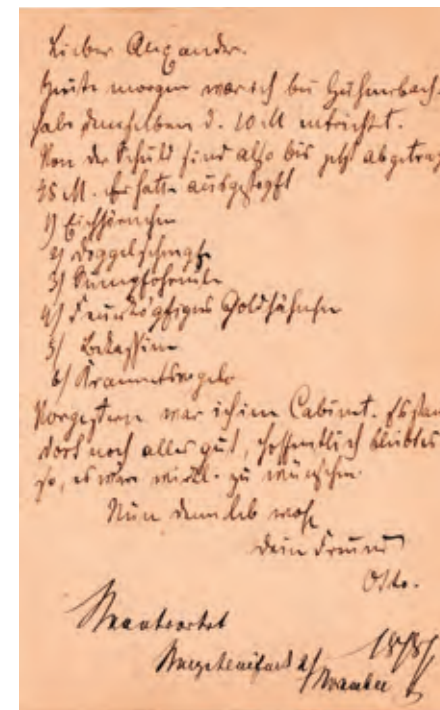 Lieber Alexander.
Heute morgen war ich bei Huhnerbach.
habe demselben d. 10 M entrichtet.
Von der Schuld sind also bis jetzt abgetrag
35 M. Er hatte ausgestopft
1) Eichhörnchen
2) Doggelschnepfe
3) Sumpfohreule
4) Feuerköpfiges Goldhähnche
5) Bekassine
6) Krammetsvogel
Vorgestern war ich im Cabinet. Es stan
dort noch alles gut, hoffentlich bleibt es
so, es wäre wirkl. zu wünschen.
Nun denn leb wohl
Dein Freund
Otto.
Beantwortet
1878
November